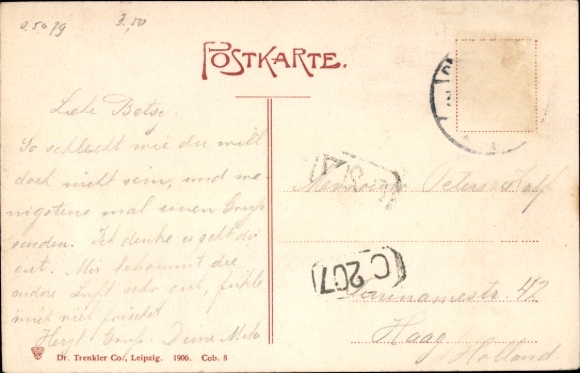 0.50 99
3,50
POSTKARTE.
Liebe Betsy.
So schlecht wie du will
doch nicht sein, und we-
nigstens mal einen Gruß
senden. Ich denke es geht dir
gut. Mir bekommt die
andere Luft sehr gut, fühle
mich viel frischer
Herzl Gruß. Deine
Peters
C 207
Surinamestr 42
Haag
Holland
Dr. Trenkler Co., Leipzig. 1906. Cob. 8